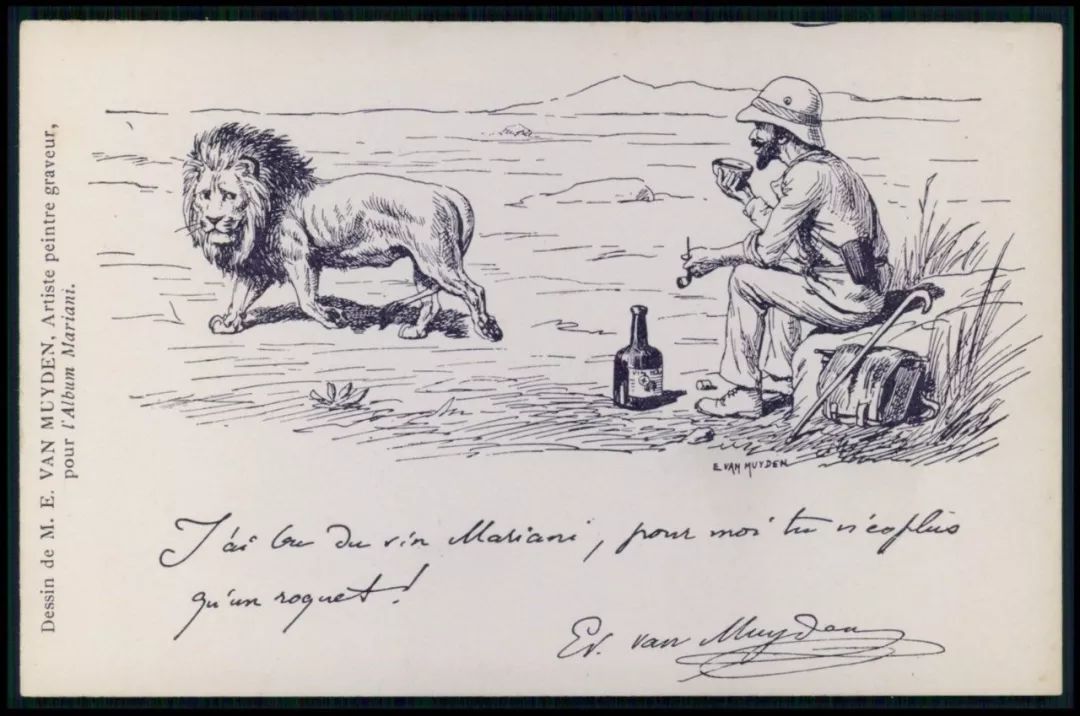 Dessin de M. E. VAN MUYDEN, Artiste peintre graveur,
pour l'Album Mariani.
E. VAN MUYDEN
J'ai bu du vin Mariani, pour moi tu n'es plus
qu'un roquet !
Ev. van Muyden